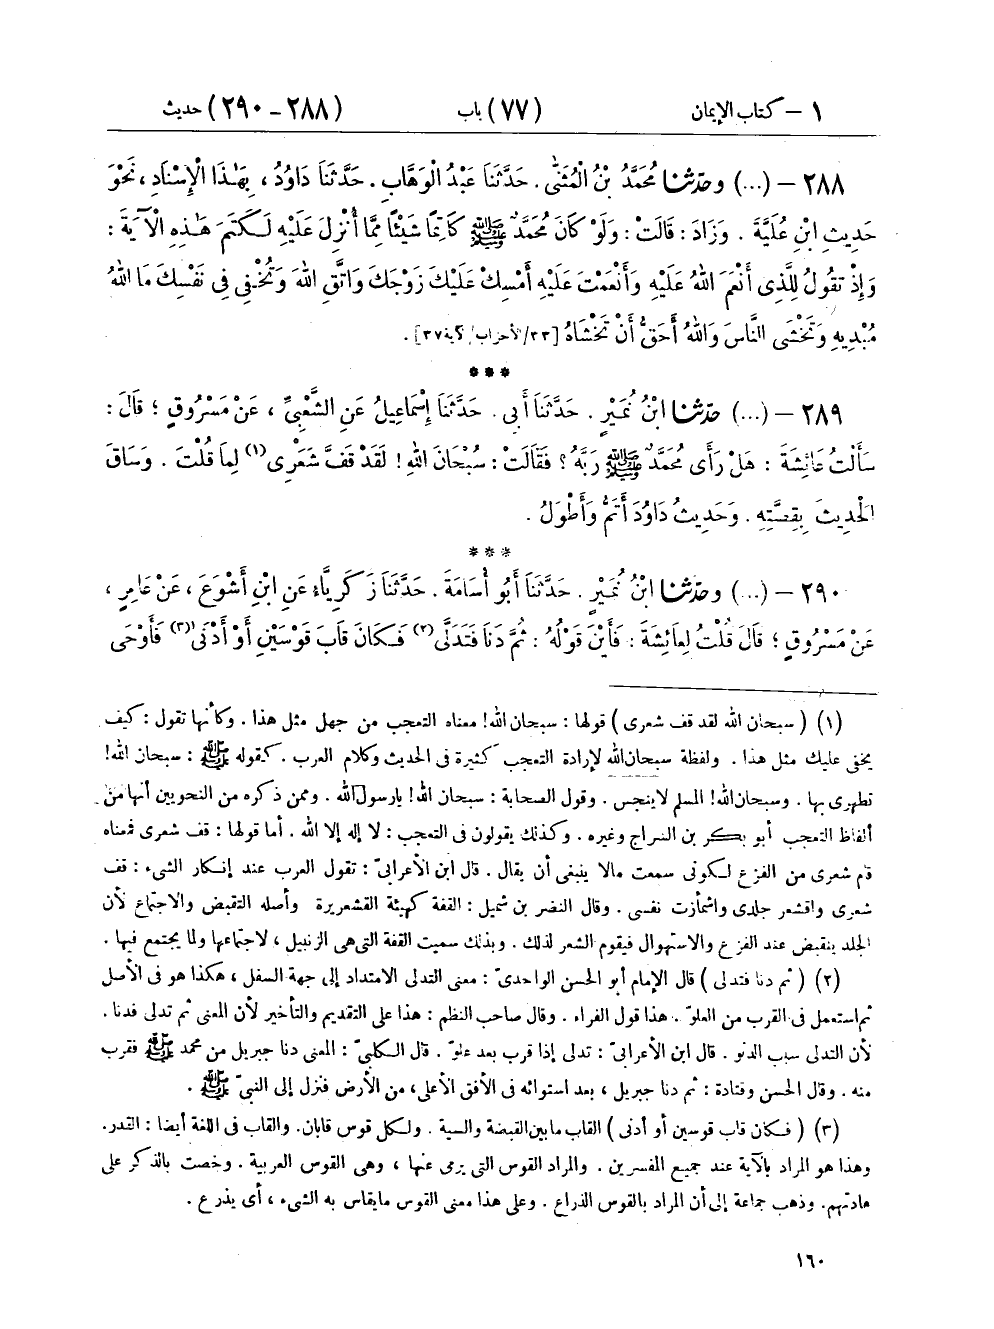 ١ – كتاب الإيمان (٧٧) باب (٢٨٨ – ٢٩٠) حديث
٢٨٨ – (...) وحَدَّثَنَا مُحَمَّدُ بْنُ الْمُثَنَّى. حَدَّثَنَا عَبْدُ الْوَهَّابِ. حَدَّثَنَا دَاوُدُ، بِهَذَا الْإِسْنَادِ، نَحْوَ
حَدِيثِ ابْنِ عُلَيَّةَ. وَزَادَ: قَالَتْ: وَلَوْ كَانَ مُحَمَّدٌ ﷺ كَاتِمًا شَيْئًا مِمَّا أُنْزِلَ عَلَيْهِ لَكَتَمَ هَذِهِ الْآيَةَ:
وَإِذْ تَقُولُ لِلَّذِي أَنْعَمَ اللهُ عَلَيْهِ وَأَنْعَمْتَ عَلَيْهِ أَمْسِكْ عَلَيْكَ زَوْجَكَ وَاتَّقِ اللهَ وَتُخْفِي فِي نَفْسِكَ مَا اللهُ
مُبْدِيهِ وَتَخْشَى النَّاسَ وَاللهُ أَحَقُّ أَنْ تَخْشَاهُ [٣٣/الأحزاب/ آية ٣٧].
***
٢٨٩ – (...) حَدَّثَنَا ابْنُ نُمَيْرٍ. حَدَّثَنَا أَبِي. حَدَّثَنَا إِسْمَاعِيلُ عَنِ الشَّعْبِيِّ، عَنْ مَسْرُوقٍ؛ قَالَ:
سَأَلْتُ عَائِشَةَ: هَلْ رَأَى مُحَمَّدٌ ﷺ رَبَّهُ؟ فَقَالَتْ: سُبْحَانَ اللهِ! لَقَدْ قَفَّ شَعْرِي(١) لِمَا قُلْتَ. وَسَاقَ
الْحَدِيثَ بِقِصَّتِهِ. وَحَدِيثُ دَاوُدَ أَتَمُّ وَأَطْوَلُ.
***
٢٩٠ – (...) وحَدَّثَنَا ابْنُ نُمَيْرٍ. حَدَّثَنَا أَبُو أُسَامَةَ. حَدَّثَنَا زَكَرِيَّاءُ عَنِ ابْنِ أَشْوَعَ، عَنْ عَامِرٍ،
عَنْ مَسْرُوقٍ؛ قَالَ قُلْتُ لِعَائِشَةَ: فَأَيْنَ قَوْلُهُ: ثُمَّ دَنَا فَتَدَلَّى(٢) فَكَانَ قَابَ قَوْسَيْنِ أَوْ أَدْنَى(٣) فَأَوْحَى
(١) (سبحان الله لقد قف شعرى) قولها: سبحان الله! معناه التعجب من جهل مثل هذا. وكأنها تقول: كيف
يخفى عليك مثل هذا. ولفظة سبحان الله لإرادة التعجب كثيرة فى الحديث وكلام العرب. كقوله ﷺ: سبحان الله!
تطهرى بها. وسبحان الله! المسلم لا ينجس. وقول الصحابة: سبحان الله! يا رسول الله. وممن ذكره من النحويين أنها من
ألفاظ التعجب أبو بكر بن السراج وغيره. وكذلك يقولون فى التعجب: لا إله إلا الله. أما قولها: قف شعرى فمعناه
قام شعرى من الفزع لكونى سمعت مالا ينبغى أن يقال. قال ابن الأعرابىّ: تقول العرب عند إنكار الشىء: قف
شعرى واقشعر جلدى واشمأزت نفسى. وقال النضر بن شميل: القفة كهيئة القشعريرة وأصله التقبض والاجتماع لأن
الجلد ينقبض عند الفزع والاستهوال فيقوم الشعر لذلك. وبذلك سميت القفة التى هى الزنبيل، لاجتماعها ولما يجتمع فيها.
(٢) (ثم دنا فتدلى) قال الإمام أبو الحسن الواحدىّ: معنى التدلى الامتداد إلى جهة السفل، هكذا هو فى الأصل
ثم استعمل فى القرب من العلوّ. هذا قول الفراء. وقال صاحب النظم: هذا على التقديم والتأخير لأن المعنى ثم تدلى فدنا.
لأن التدلى سبب الدنو. قال ابن الأعرابىّ: تدلى إذا قرب بعد علوّ. قال الكلبىّ: المعنى دنا جبريل من محمد ﷺ فقرب
منه. وقال الحسن وقتادة: ثم دنا جبريل، بعد استوائه فى الأفق الأعلى، من الأرض فنزل إلى النبىّ ﷺ.
(٣) (فكان قاب قوسين أو أدنى) القاب ما بين القبضة والسية. ولكل قوس قابان. والقاب فى اللغة أيضا: القدر.
وهذا هو المراد بالآية عند جميع المفسرين. والمراد القوس التى يرمى عنها، وهى القوس العربية. وخصت بالذكر على
عادتهم. وذهب جماعة إلى أن المراد بالقوس الذراع. وعلى هذا معنى القوس ما يقاس به الشىء، أى يذرع.
١٦٠